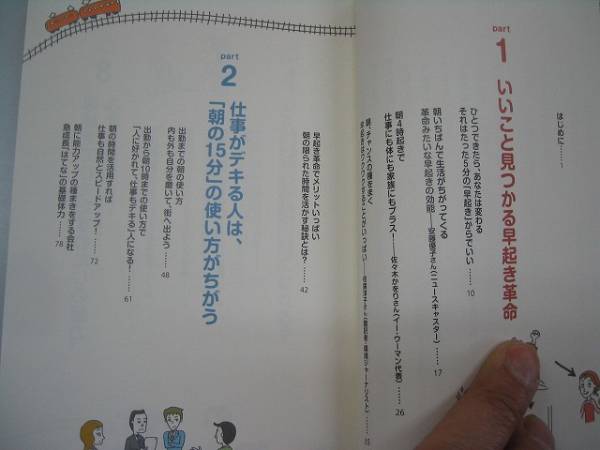 はじめに……
part
1
いいこと見つかる早起き革命
ひとつできたら、あなたは変わる
それはたった5分の「早起き」からでいい…… 10
朝いちばんで生活がちがってくる
革命みたいな早起きの効能――安藤優子さん(ニュースキャスター)…… 17
朝4時起きで
仕事にも体にも家族にもプラス――佐々木かをりさん(イー・ウーマン代表)…… 26
朝、チャンスの種をまく
早起き革命でメリットいっぱい
朝の限られた時間を活かす秘訣とは?…… 42
part
2
仕事がデキる人は、
「朝の15分」の使い方がちがう
出勤までの朝の使い方
内も外も自分を磨いて、街へ出よう…… 48
出勤から朝10時までの使い方で
「人に好かれて、仕事もデキる」人になる!…… 61
朝の時間を活用すれば
仕事も自然とスピードアップ!…… 72
朝に能力アップの種まきをする会社
急成長「はてな」の基礎体力…… 78